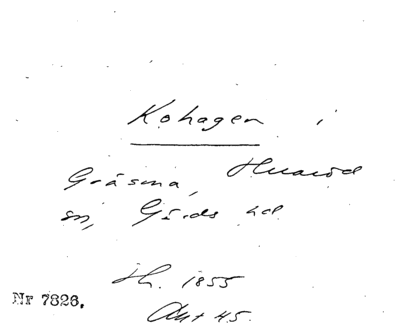 Kohagen i
Gråsma, Huaröd
sn, Gärds hd
Lh. 1855
Akt 45.
Nr 7826.